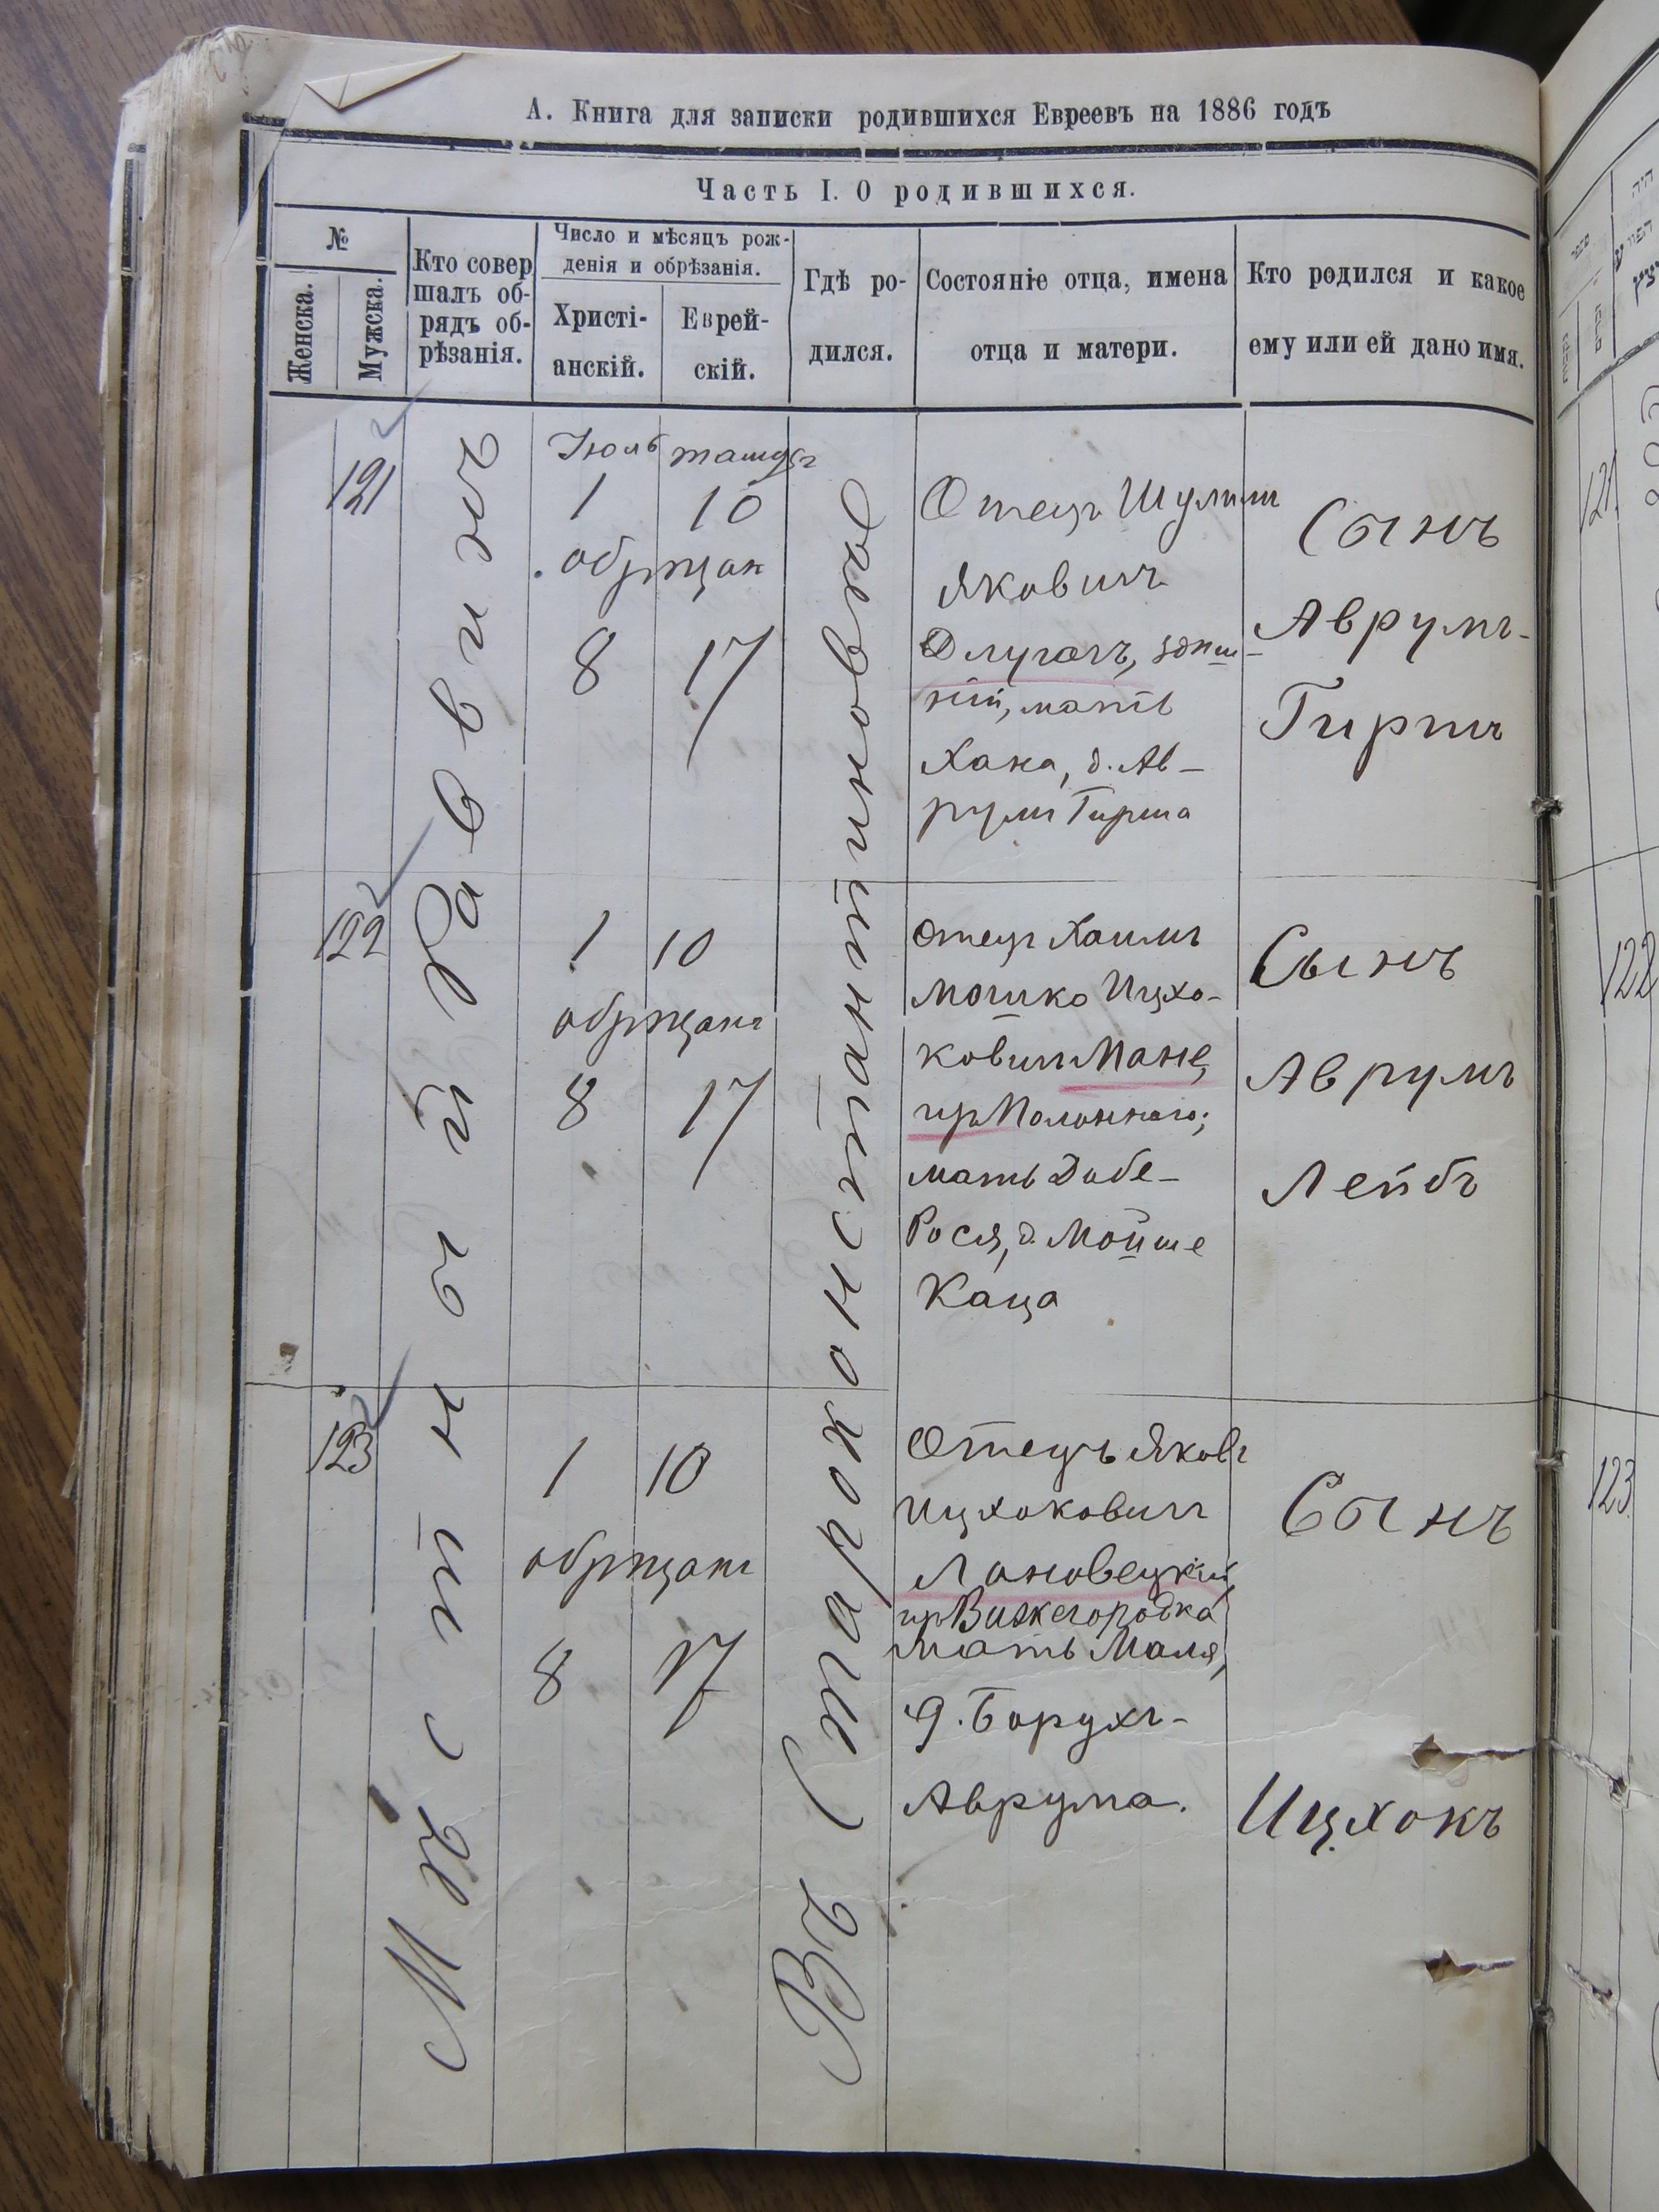 А. Книга для записки родившихся Евреевъ на 1886 годъ
Часть I. О родившихся.
№
Женска.
Мужска.
Кто совер
шалъ об-
рядъ об-
рѣзанія.
Число и мѣсяцъ рож-
денія и обрѣзанія.
Христі-
анскій.
Еврей-
скій.
Гдѣ ро-
дился.
Состояніе отца, имена
отца и матери.
Кто родился и какое
ему или ей дано имя.
Мѣстный раввинъ
Въ Староконстантиновѣ
121
Іюль тамузъ
1 10
обрѣзан
8 17
Отецъ Шулим
Яковичъ
Длугачъ, здѣш-
ній, мать
Хана, д. Ав-
рум Гирша
Сынъ
Аврумъ-
Гиршъ
122
1 10
обрѣзанъ
8 17
Отецъ Хаимъ
Мошко Ицхо-
ковичъ Мане,
изъ Полоннаго;
мать Добе-
Рося, д. Мойше
Каца
Сынъ
Аврумъ
Лейбъ
123
1 10
обрѣзанъ
8 17
Отецъ Яковъ
Ицхоковичъ
Лановецкій,
изъ Вижгородка
мать Маля,
д. Борухъ-
Аврума.
Сынъ
Ицхокъ
121
122
123